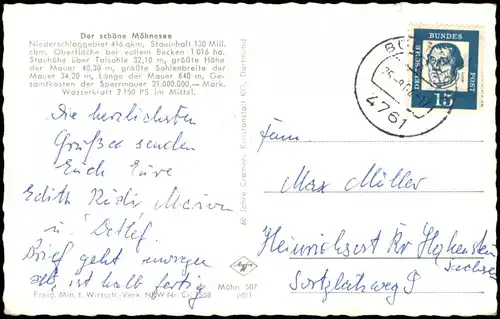 Der schöne Möhnesee
Niederschlaggebiet 416 qkm, Stauinhalt 130 Mill.
cbm, Oberfläche bei vollem Becken 1 016 ha.
Stauhöhe über Talsohle 32,10 m, größte Höhe
der Mauer 40,30 m, größte Sohlenbreite der
Mauer 34,20 m, Länge der Mauer 640 m, Ge-
samtkosten der Sperrmauer 21.000.000,— Mark.
Wasserkraft 2 150 PS im Mittel.
Die herzlichsten
Grüße senden
Euch Eure
Edith Rudi Marion
u. Detlef.
Brief geht morgen
ab, ist halb fertig
Freig. Min. f. Wirtsch.-Verk. NRW Nr.
60 Jahre Cramers Kunstanstalt KG, Dortmund
Möhn. 507
4761
DEUTSCHE BUNDES POST
15
Fam.
Max Müller
Heinrichsort Kr
Sachsen